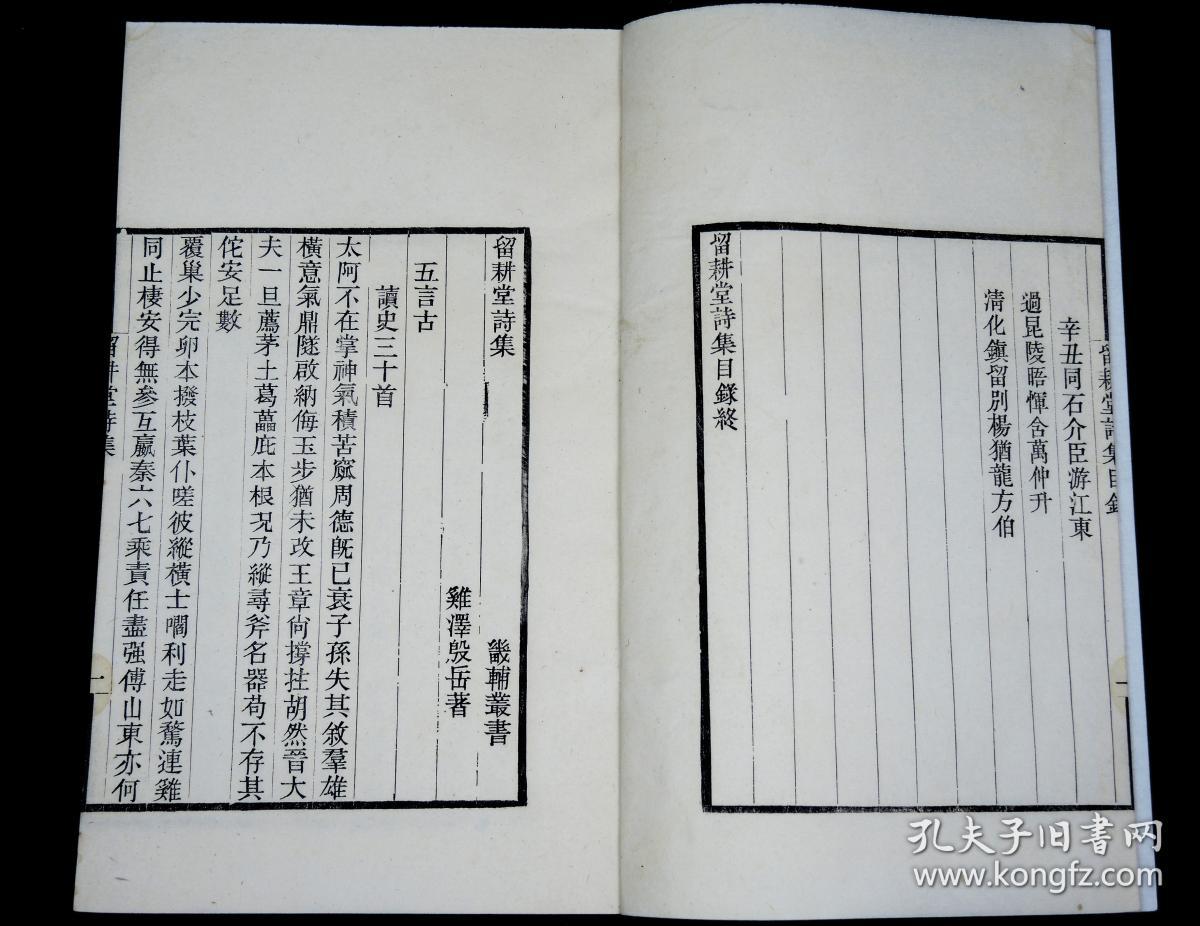 留耕堂詩集目錄
辛丑同石介臣游江東
過昆陵晤惲舍萬仲升
清化鎮留別楊猶龍方伯
留耕堂詩集目錄終
一
留耕堂詩集
畿輔叢書
雞澤殷岳著
五言古
讀史三十首
太阿不在掌神氣積苦窳周德旣已衰子孫失其敘羣雄
橫意氣鼎隧啟納侮玉步猶未改王章尙撐拄胡然晉大
夫一旦薦茅土葛藟庇本根况乃縱尋斧名器苟不存其
佗安足數
覆巢少完卵本撥枝葉仆嗟彼縱橫士啁利走如騖連雞
同止棲安得無參互嬴秦六七乘責任盡强傅山東亦何
留耕堂詩集
一
孔夫子旧书网
www.kongfz.com